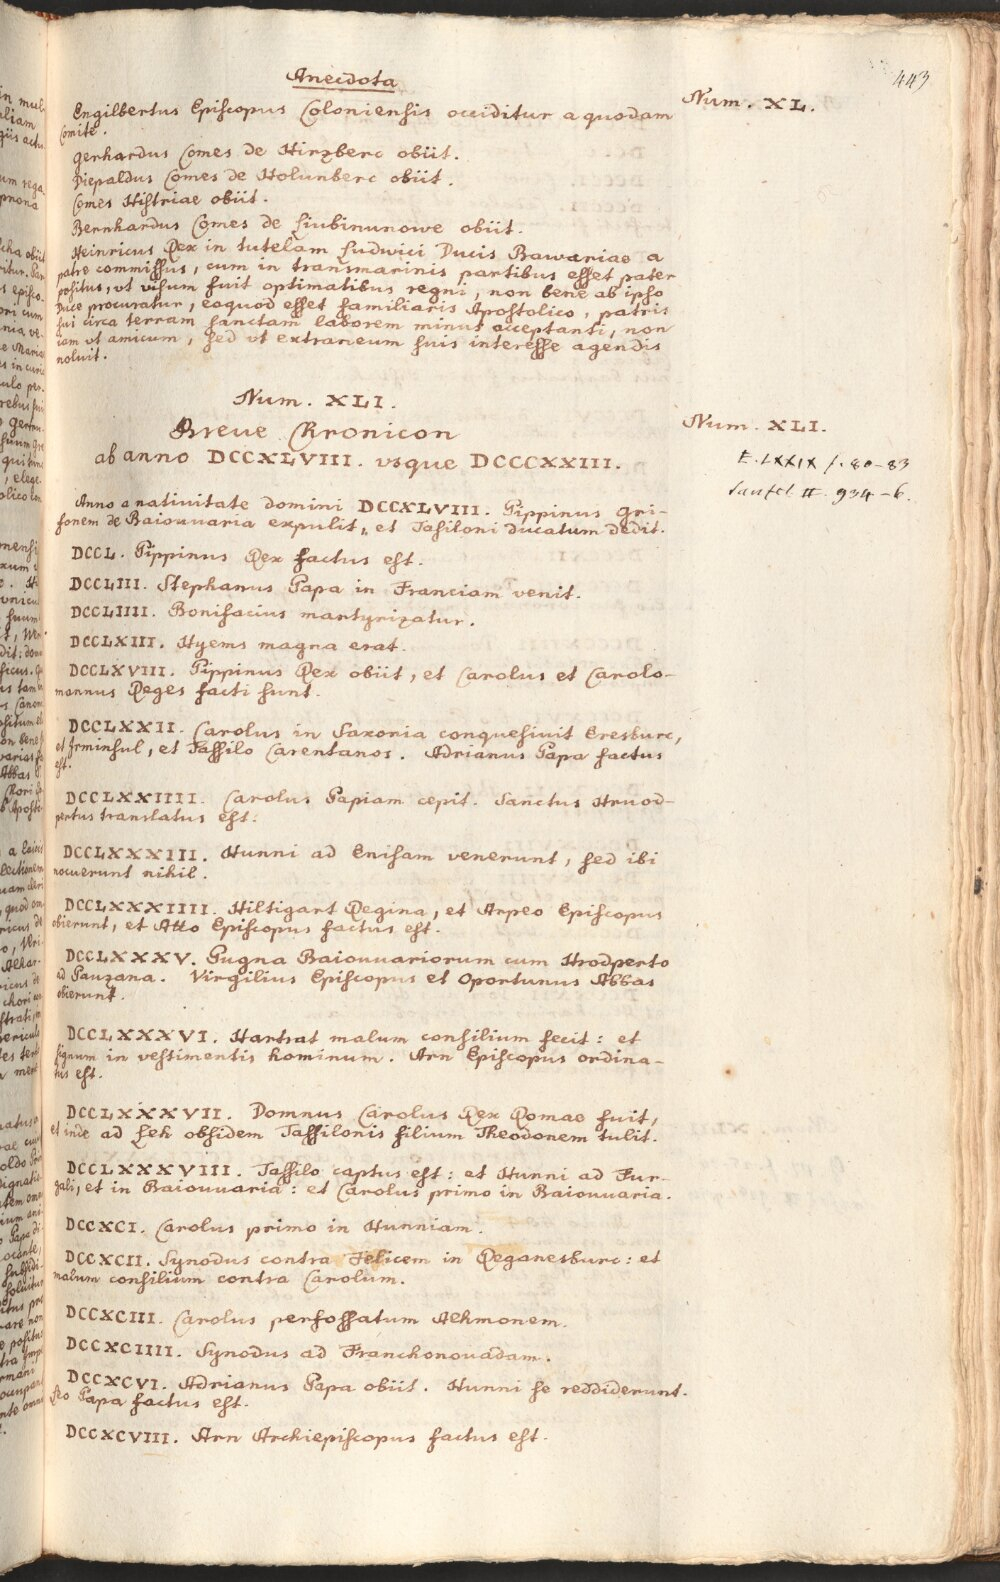 443
Anecdota
Num. XL.
Engilbertus Episcopus Coloniensis occiditur a quodam
Comite.
Gerhardus Comes de Hirzberc obiit.
Diepaldus Comes de Holunberc obiit.
Comes Histriae obiit.
Bernhardus Comes de Liubinunowe obiit.
Heinricus Rex in tutelam Ludwici Ducis Bawariae a
patre commissus, cum in transmarinis partibus esset pater
positus, vt visum fuit optimatibus regni, non bene ab ipso
Duce procuratur, eoquod esset familiaris Apostolico, patris
sui circa terram sanctam laborem minus acceptanti, non
iam vt amicum, sed vt extraneum suis interesse agendis
noluit.
Num. XLI.
Num. XLI.
Breve Chronicon
ab anno DCCXLVIII. vsque DCCCXXIII.
E. LXXIX f. 80-83
II. 934-6.
Anno a nativitate domini DCCXLVIII. Pippinus Gri-
fonem de Baiouuaria expulit, et Tasiloni ducatum dedit.
DCCL. Pippinus Rex factus est.
DCCLIII. Stephanus Papa in Franciam venit.
DCCLIIII. Bonifacius martyrizatur.
DCCLXIII. Hyems magna erat.
DCCLXVIII. Pippinus Rex obiit, et Carolus et Carolo-
mannus Reges facti sunt.
DCCLXXII. Carolus in Saxonia conquesivit Eresburc,
et Irminsul, et Tassilo Carentanos. Adrianus Papa factus
est.
DCCLXXIIII. Carolus Papiam cepit. Sanctus Hruod-
pertus translatus est.
DCCLXXXIII. Hunni ad Enisam venerunt, sed ibi
nocuerunt nihil.
DCCLXXXIIII. Hiltigart Regina, et Arpeo Episcopus
obierunt, et Atto Episcopus factus est.
DCCLXXXV. Pugna Baiouuariorum cum Hrodperto
ad Pauzana. Virgilius Episcopus et Oportunus Abbas
obierunt.
DCCLXXXVI. Hartrat malum consilium fecit: et
signum in vestimentis hominum. Arn Episcopus ordina-
tus est.
DCCLXXXVII. Domnus Carolus Rex Romae fuit,
et inde ad Leh obsidem Tassilonis filium Theodonem tulit.
DCCLXXXVIII. Tassilo captus est: et Hunni ad Fur-
gali, et in Baiouuaria: et Carolus primo in Baiouuaria.
DCCXCI. Carolus primo in Hunniam.
DCCXCII. Synodus contra Felicem in Reganesburc: et
malum consilium contra Carolum.
DCCXCIII. Carolus perfossatum Alhmonem.
DCCXCIIII. Synodus ad Franchonovadam.
DCCXCVI. Adrianus Papa obiit. Hunni se reddiderunt.
Leo Papa factus est.
DCCXCVIII. Arn Archiepiscopus factus est.